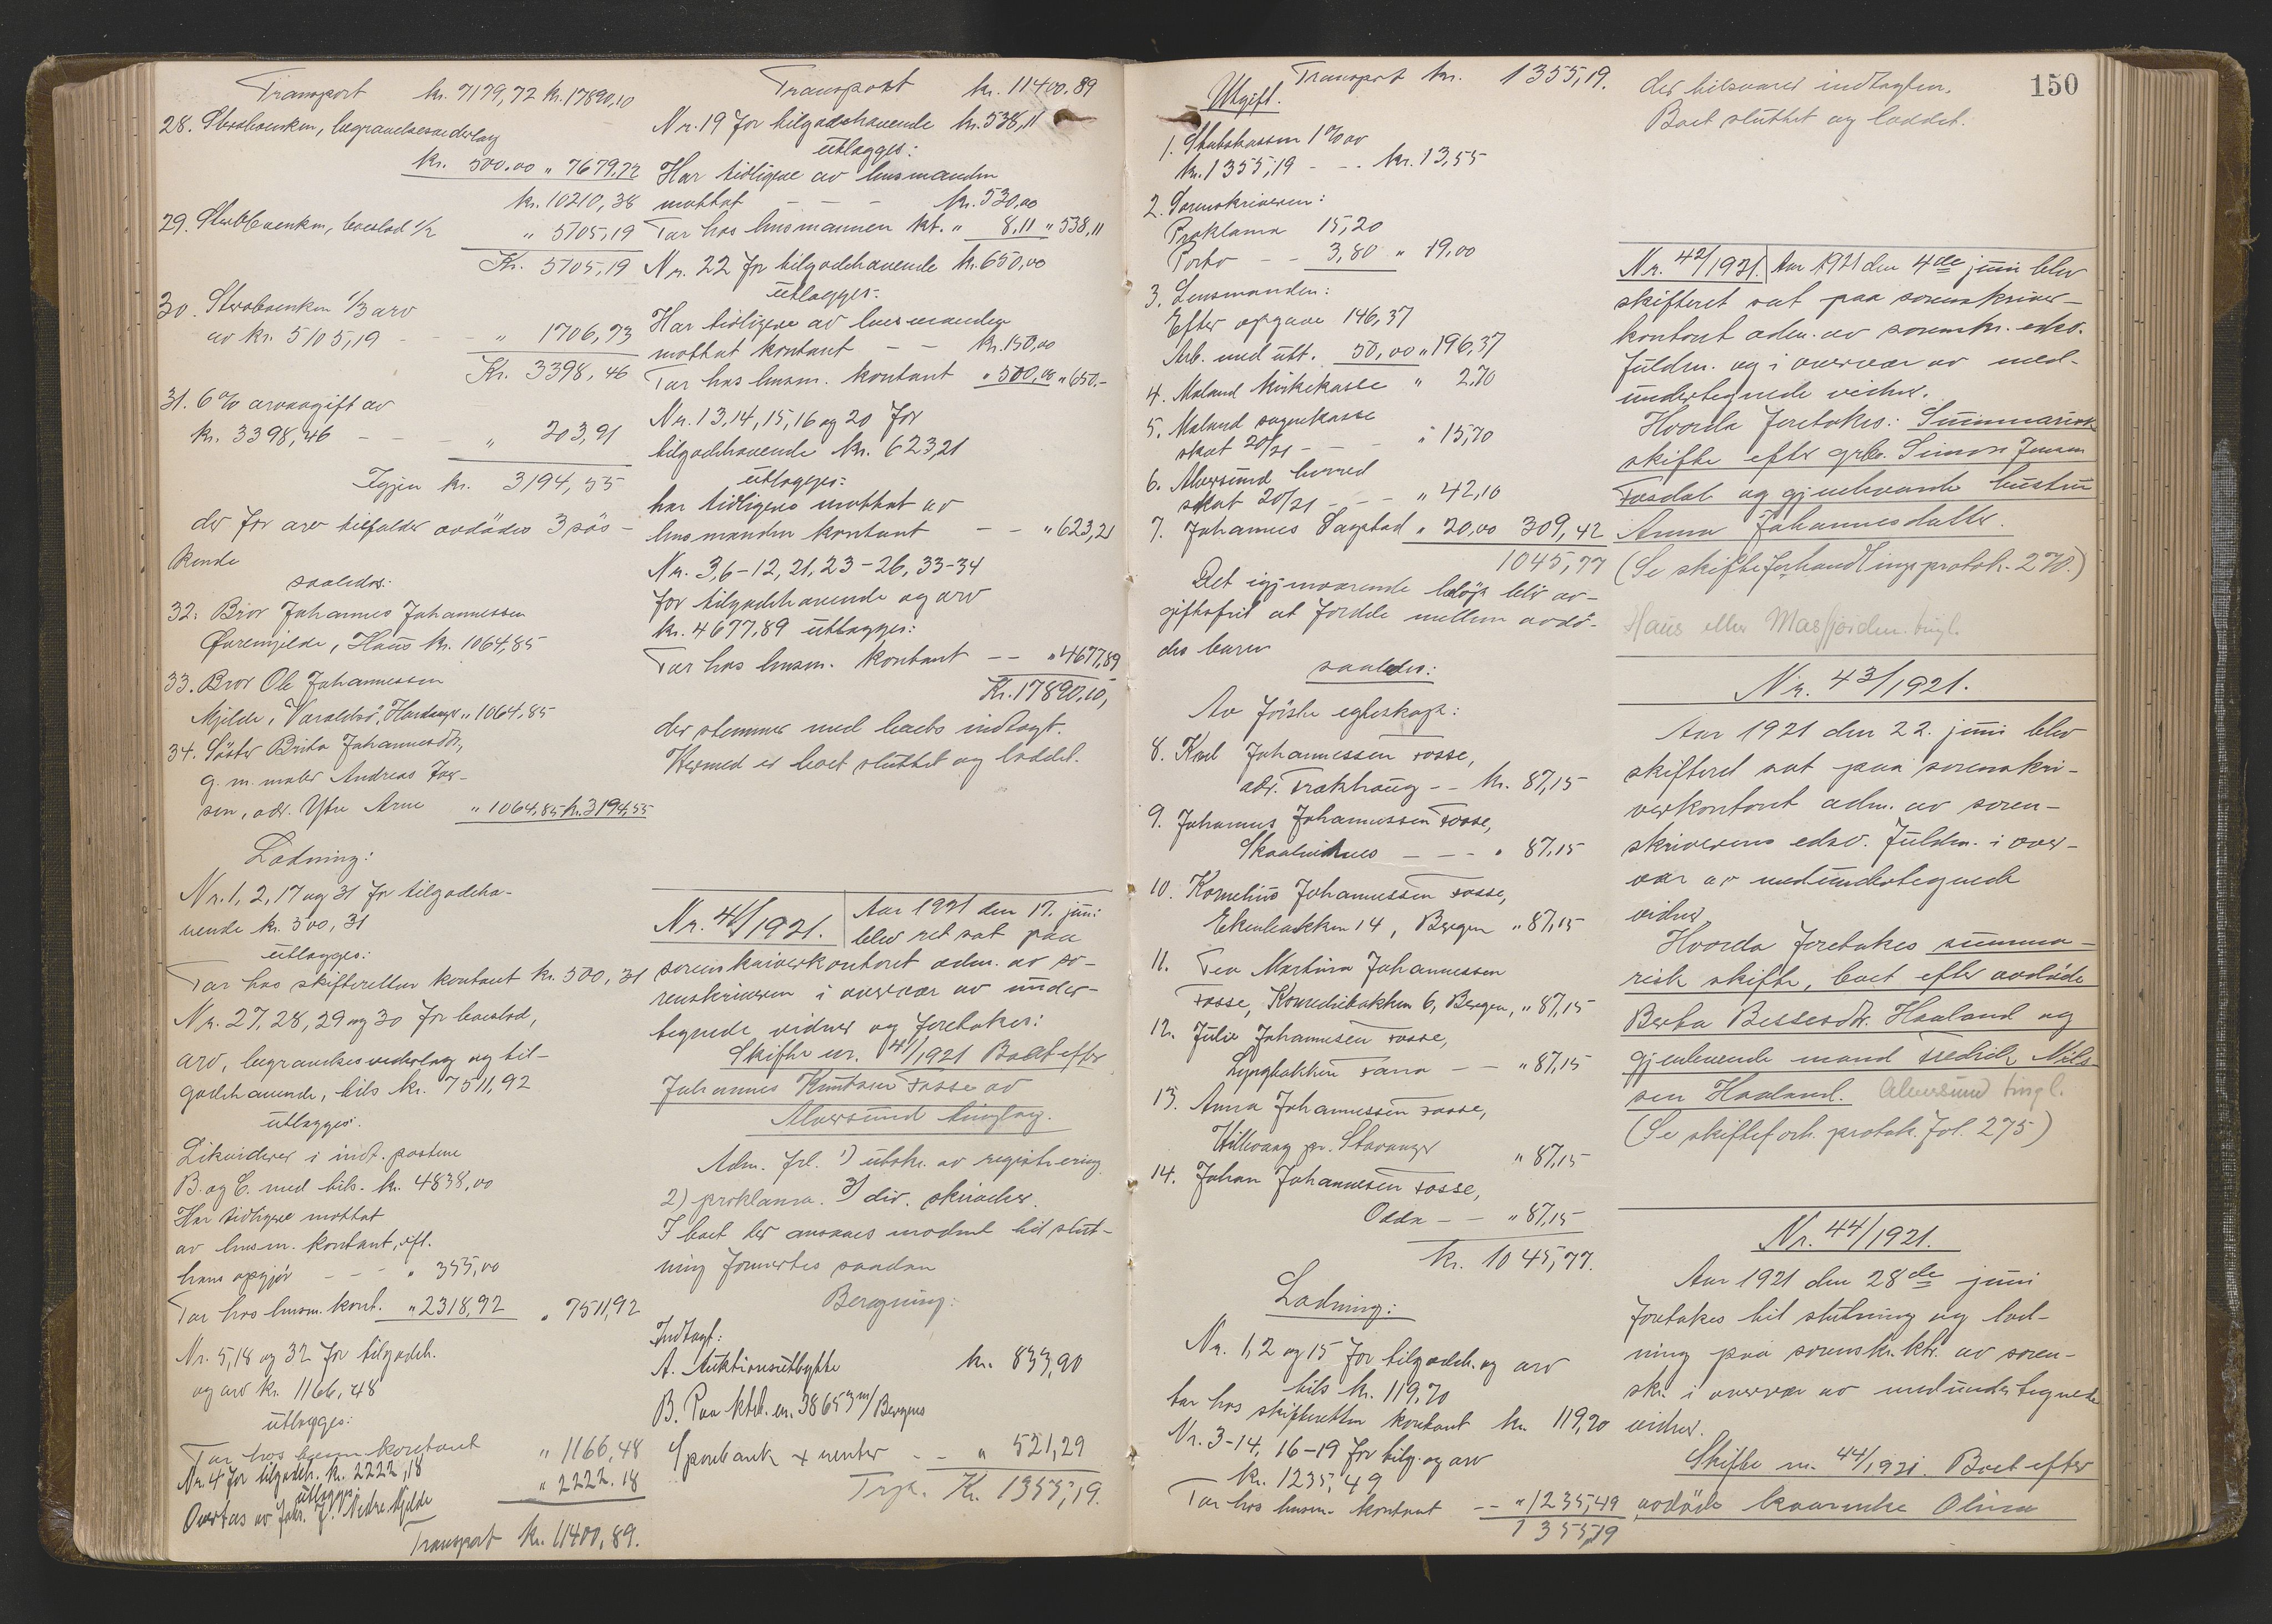 Transport kr. 7179,72 kr. 17890,10
28. Sterboenken, begravelsesvederlag
kr. 500.00 " 7679,72
kr. 10210,38
29. Sterboenken, boeslod 1/2
" 5105,19
Kr. 5105,19
30. Sterboenken 1/3 arv
av kr. 5105,19 - - " 1706,73
Kr. 3398,46
31. 6% arveavgift av
kr. 3398,46 - - - " 203,91
Igjen kr. 3194,55
der for arv tilfalder avdødes 3 søs-
kende
saaledes:
32. Bror Johannes Johannessen
Øvremjelde, Haus kr. 1064,85
33. Bror Ole Johannessen
Mjelde, Varaldsø, Hardanger " 1064,85
34. Søster Brita Johannesdtr.,
g. m. maler Andreas
sen, adr. Ytre Arne " 1064,85 kr. 3194,55
Lodning:
Nr. 1, 2, 17 og 31 for tilgodeha-
vende kr. 500,31
utlægges:
Tar hos skifteretten kontant kr. 500,31
Nr. 27, 28, 29 og 30 for boeslod,
arv, begravelsesvederlag og til-
godehavende, tils kr. 7511,92
utlægges:
Likviderer i indt. postene
B. og C. med tils. kr. 4838,00
Har tidligere mottat
av lensm. kontant, eft.
hans opgjør - - - " 355,00
Tar hos lensm. kont. " 2318,92 " 7511,92
Nr. 5, 18 og 32 for tilgodeh.
og arv kr. 1166,48
utlægges:
Tar hos lensm kontant " 1166,48
Nr. 4 for tilgodeh. kr. 2222,18
utlægges:
Overtas av Johs. J. Nedre Mjelde " 2222.18
Transport kr. 11400,89.
Transport kr. 11400.89
Nr. 19 for tilgodehavende kr. 538,11
utlægges:
Har tidligere av lensmanden
mottat - - - kr. 530,00
Tar hos lensmannen kt. " 8,11 " 538,11
Nr. 22 for tilgodehavende kr. 650,00
utlægges:
Har tidligere av lensmanden
mottat kontant - - kr. 150,00
Tar hos lensm. kontant " 500,00 " 650.-
Nr. 13, 14, 15, 16 og 20 for
tilgodehavende kr. 623,21
utlægges:
har tidligere mottat av
lensmanden kontant - - " 623,21
Nr. 3, 6-12, 21, 23-26, 33-34
for tilgodehavende og arv
kr. 4677,89 utlægges:
Tar hos lensm. kontant -- " 4677,89
Kr. 17890,10,
der stemmer med boets indtægt.
Hermed er boet sluttet og loddet.
Nr. 41/1921. Aar 1921 den 17. juni
blev ret sat paa
sorenskriverkontoret adm. av so-
renskriveren i overvær av under-
tegnede vidner og foretakes:
Skifte nr. 41/1921 Boet efter
Johannes Knutsen Fosse av
Alversund tinglag.
Adm. frl. 1) utskr. av registrering
2) proklama. 3) div. skriveher.
I boet der ansaaes modent til slut-
ning forfattedes saadan
Beregning:
Indtægt:
A. Auktionsutbytte kr. 833,90
B. Paa ktrb. nr. 38653 m/ Bergens
Sparebank + renter - - " 521,29
Trp. Kr. 1355,19.
150
Transport kr. 1355,19.
Utgift.
1. Statskassen 1% av
kr. 1355,19 - - - kr. 13,55
2. Sorenskriveren:
Proklama 15,20
Porto - - 3,80 " 19,00
3. Lensmanden:
Efter opgave 146,37
Arb. med utt. 50,00 " 196,37
4. Meland kirkekasse " 2,70
5. Meland sognekasse
skat 20/21 - - - " 15,70
6. Alversund herred
skat 20/21 - - - " 42,10
7. Johannes Sagstad " 20,00 309,42
1045,77
Det igjenværende beløp blir av-
giftsfrit at fordele mellem avdø-
des barn
saaledes:
Av første egteskap:
8. Knut Johannessen Fosse,
adr. Frækhaug - - kr. 87,15
9. Johannes Johannessen Fosse,
Skaalviknes - - - " 87,15
10. Kornelius Johannessen Fosse,
Ekenbakken 14, Bergen " 87,15
11. Tea Martina Johannessen
Fosse, Komediebakken 6, Bergen, " 87,15
12. Julie Johannesen Fosse,
Lyngbakken Fana - - " 87,15
13. Anna Johannessen Fosse,
Hillevaag pr. Stavanger " 87,15
14. Johan Johannesen Fosse,
Odda - - " 87,15
kr. 1045,77.
Lodning:
Nr. 1, 2 og 15 for tilgodeh. og arv
tils kr. 119,70
tar hos skifteretten kontant kr. 119,70
Nr. 3-14, 16-19 for tilg. og arv
kr. 1235,49
Tar hos lensm. kontant -- " 1235,49
1355,19
der tilsvarer indtægten.
Boet sluttet og loddet.
Nr. 42/1921. Aar 1921 den 4de juni blev
skifteret sat paa sorenskriver-
kontoret adm. av sorenskr. edsv.
fuldm. og i overvær av med-
undertegnede vidner.
Hvorda foretokes: Summarisk
skifte efter grbr. Simon Jensen
Fosdal og gjenlevende hustru
Anna Johannesdatter.
(Se skifteforhandlings protok. 270.)
Haus eller Masfjorden tingl.
Nr. 43/1921.
Aar 1921 den 22. juni blev
skifteret sat paa sorenskri-
verkontoret adm. av soren-
skriverens edsv. fuldm. i over-
vær av medundertegnede
vidner.
Hvorda foretokes summa-
risk skifte, boet efter avdøde
Berta Bessesdtr. Haaland og
gjenlevende mand Fredrik Nils-
sen Haaland. Alversund tingl.
(Se skifteforh. protok. fol. 275)
Nr. 44/1921.
Aar 1921 den 28de juni
foretokes til slutning og lod-
ning paa sorenskr. ktr. av soren-
skr. i overvær av medundertegnede
vidner.
Skifte nr. 44/1921. Boet efter
avdøde kaarenke Olina